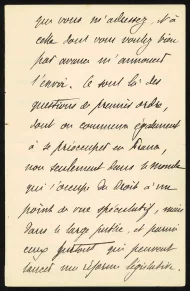 que vous m'adressez, et à
celle dont vous voulez bien
par avance m'annoncer
l'envoi. Ce sont là des
questions de premier ordre,
dont on commence également
à se préoccuper en France,
non seulement dans le monde
qui s'occupe de Droit à un
point de vue spéculatif, mais
dans le large public, et parmi
ceux qui peuvent
lancer une réforme législative.